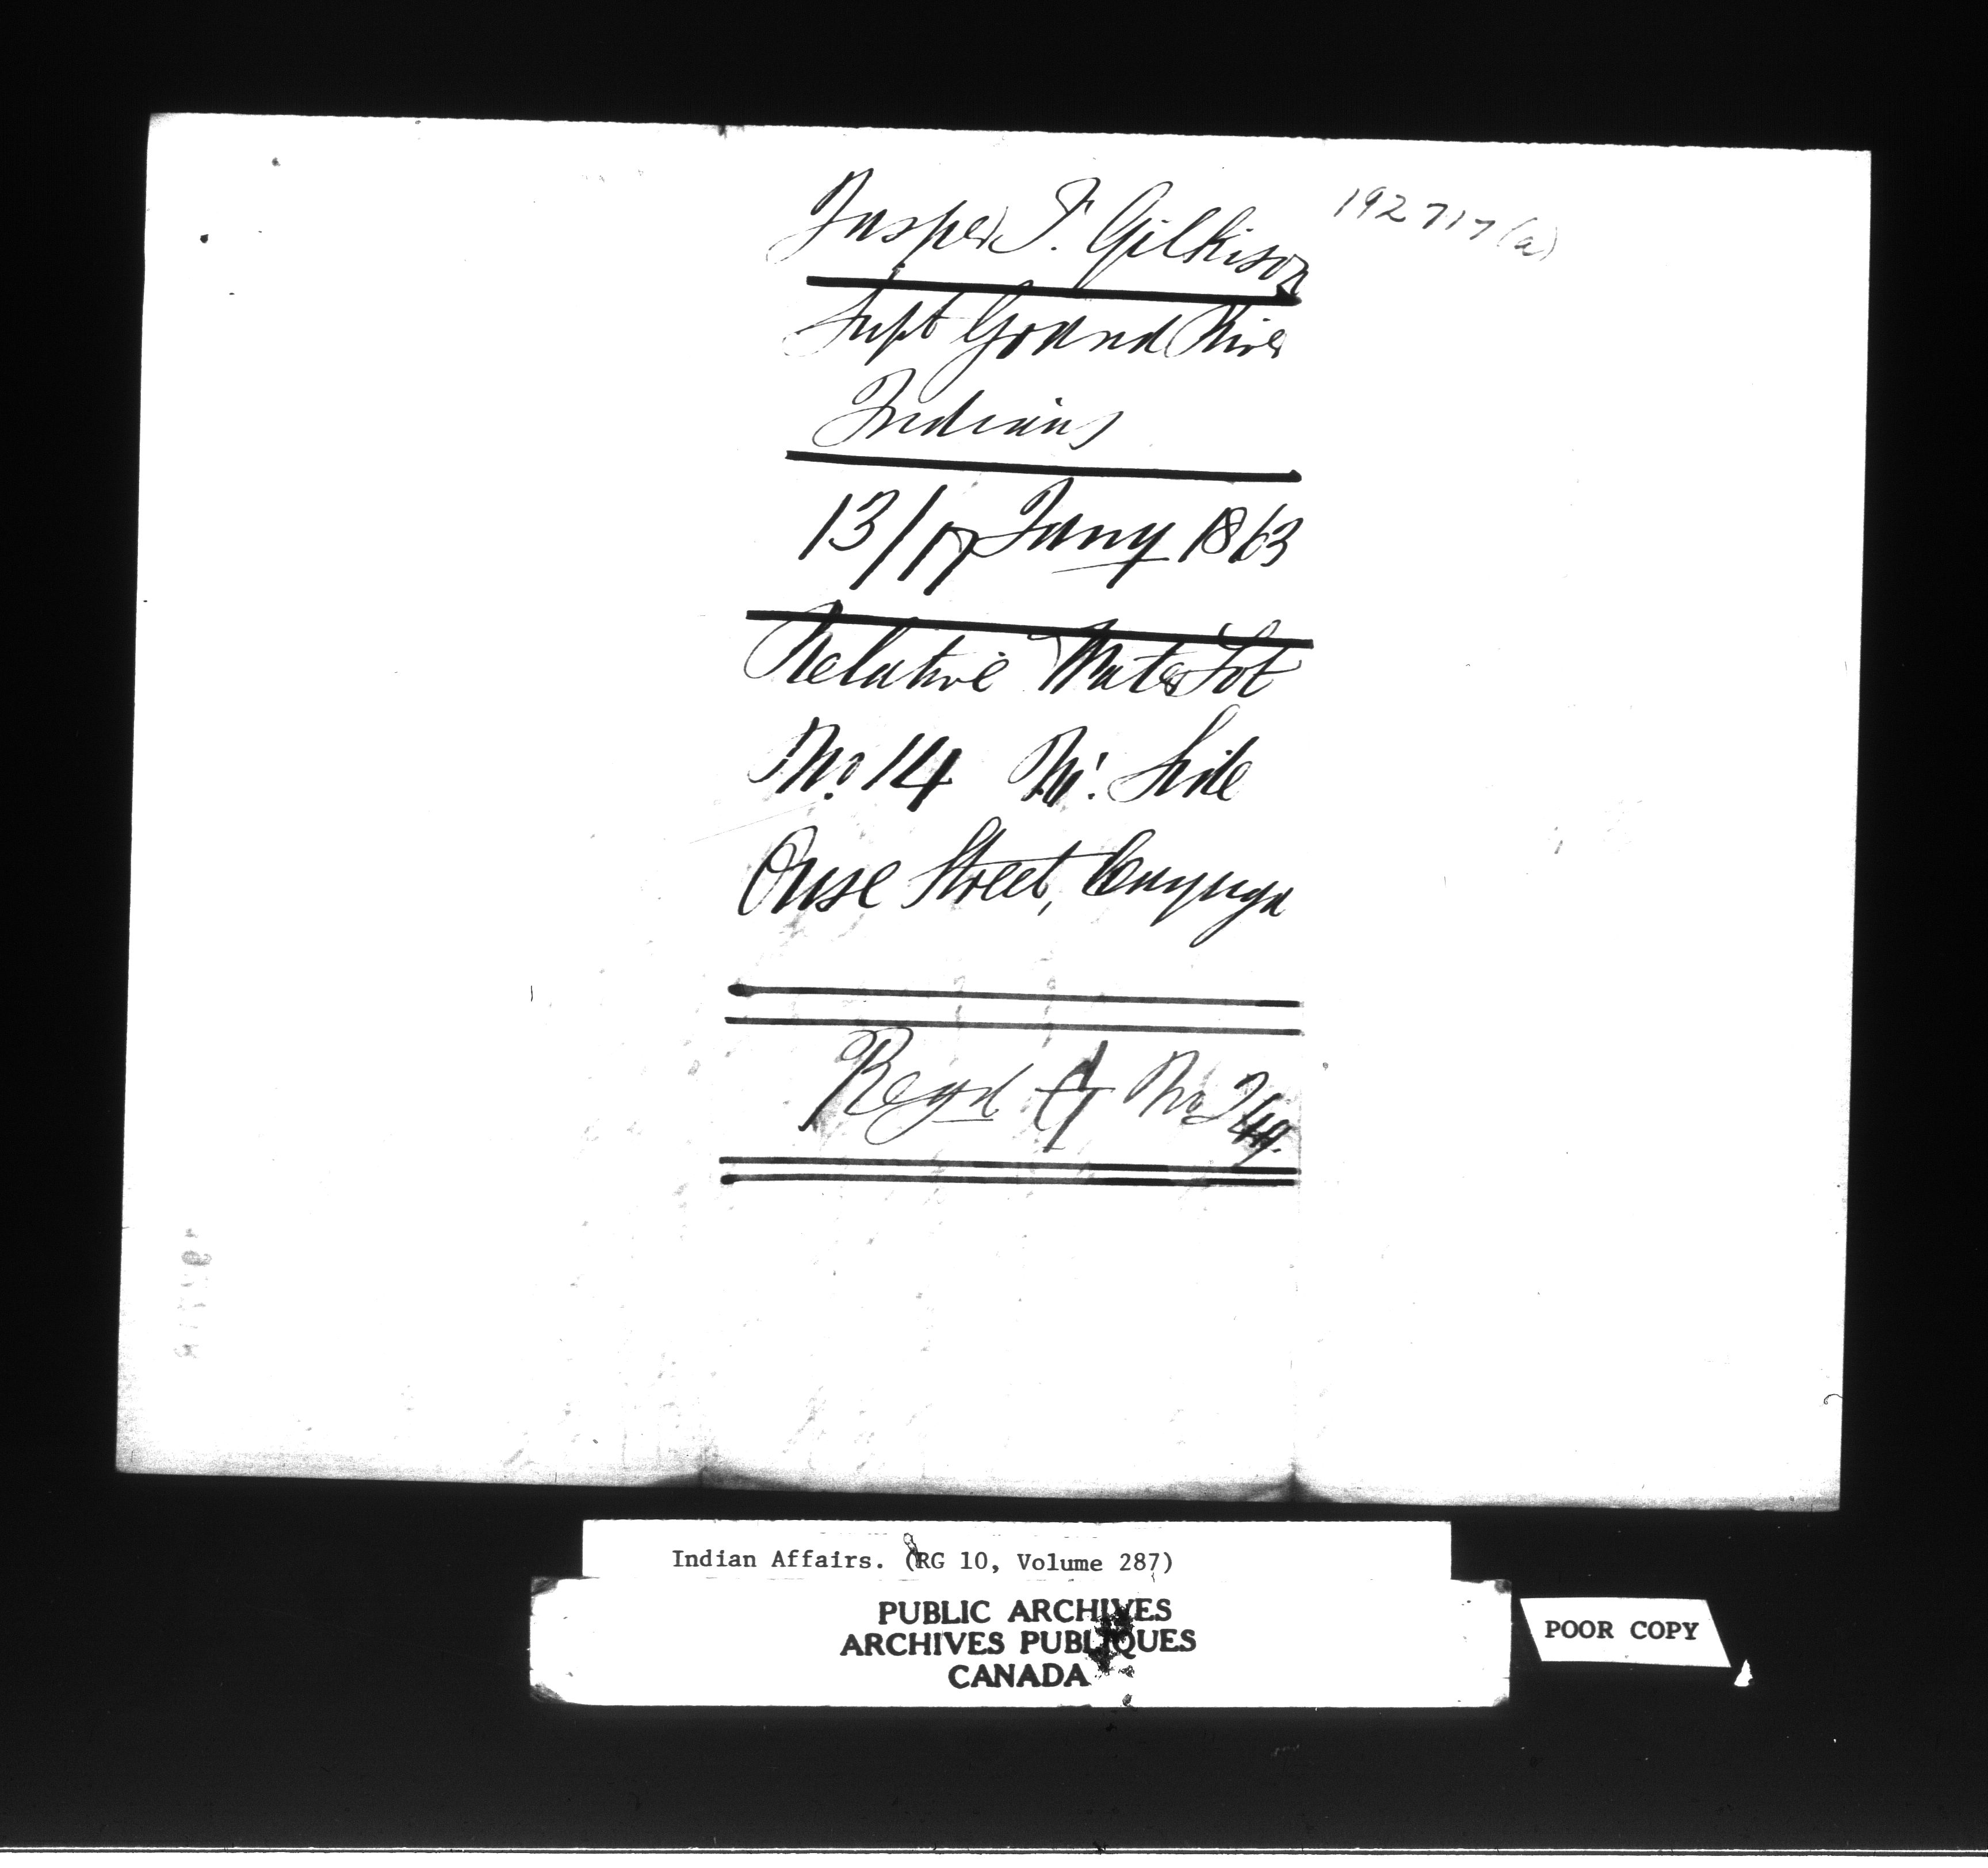 192717(a)
Jasper T. Gilkison
Supt Grand River
Indians
13/17 Jany 1863
Relative Water Lot
No. 14 Side
Ouse Street, Cayuga
Regd A No
Indian Affairs. (RG 10, Volume 287)
PUBLIC ARCHIVES
ARCHIVES PUBLIQUES
CANADA
POOR COPY